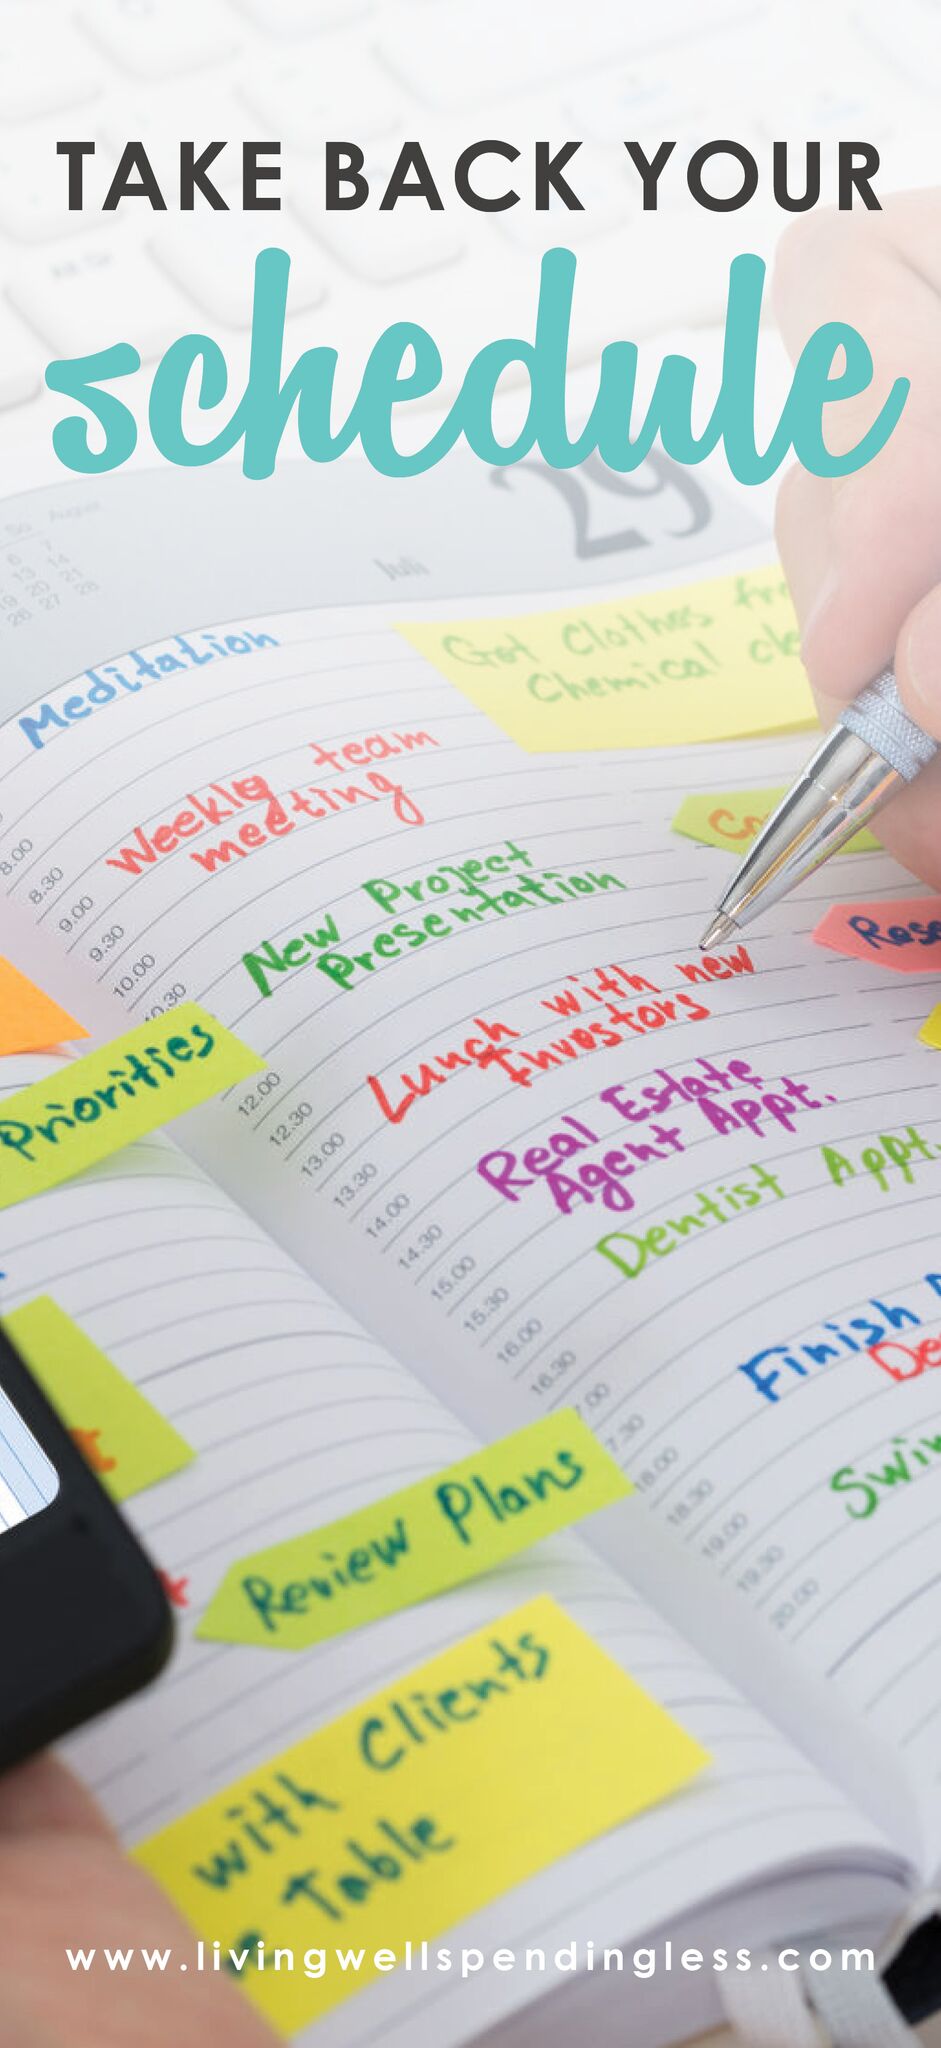 TAKE BACK YOUR
schedule
29
Juli
So August
6 7
13 14
19 20 21
26 27 28
Meditation
Get Clothes
Chemical
Weekly team
meeting
New Project
Presentation
Lunch with new
Investors
Real Estate
Agent Appt.
Dentist Appt.
Finish
8.00
8.30
9.00
9.30
10.00
10.30
12.00
12.30
13.00
13.30
14.00
14.30
15.00
15.30
16.00
16.30
18.00
18.30
19.00
19.30
20.00
Priorities
Review Plans
with Clients
Table
www.livingwellspendingless.com